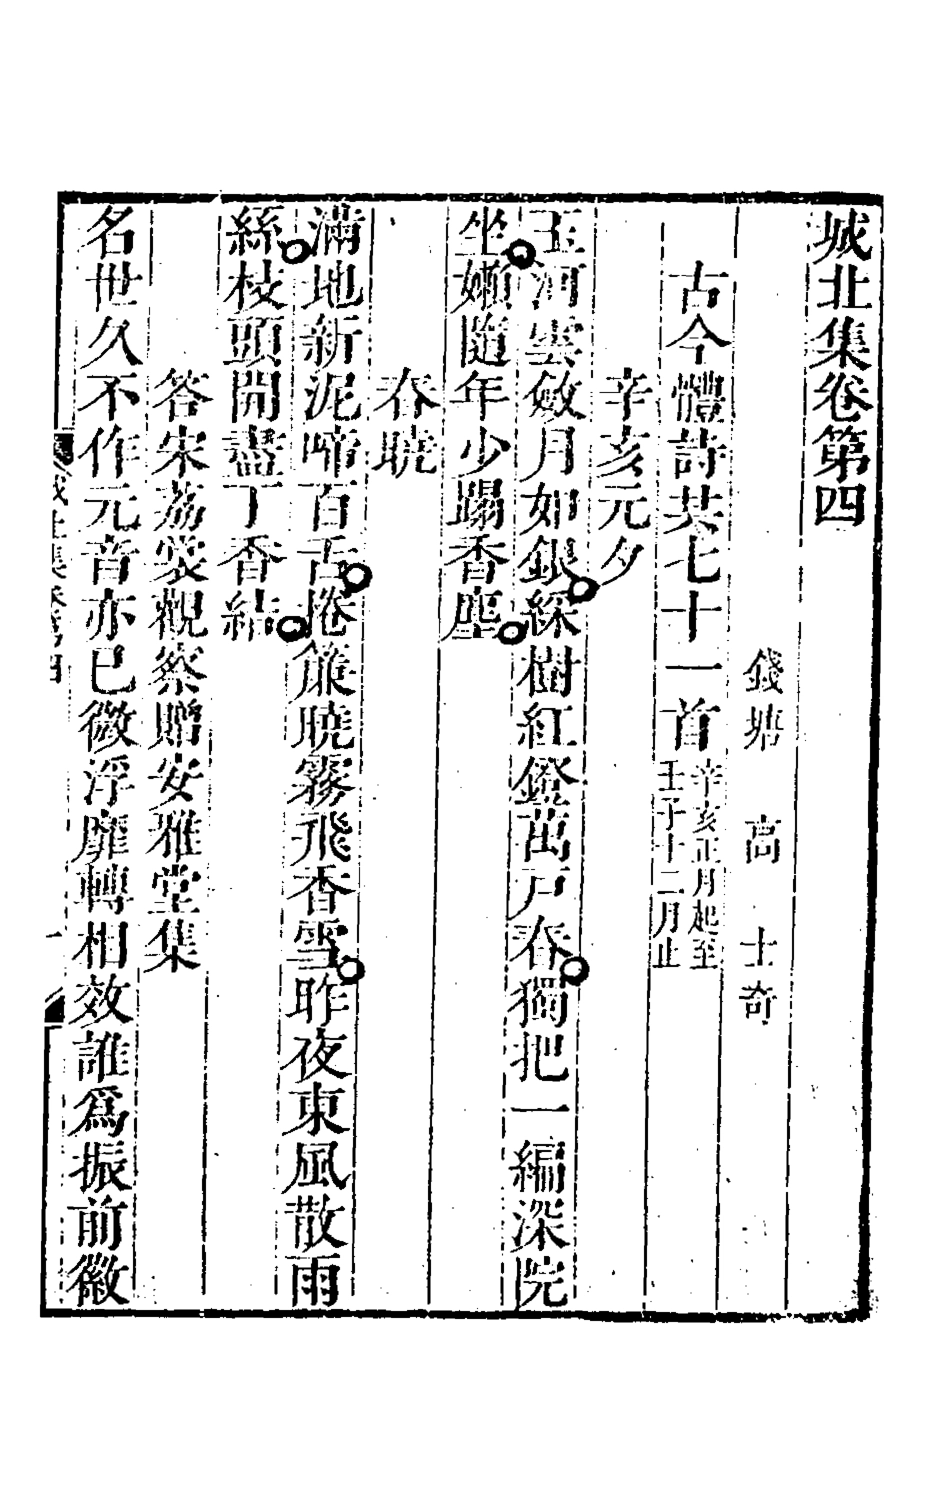 城北集卷第四
錢塘 高 士奇
古今體詩共七十一首辛亥正月起至壬子十二月止
辛亥元夕
玉河雲斂月如銀綵樹紅鐙萬戸春獨把一編深院
坐嬾隨年少蹋香塵
春曉
滿地新泥啼百舌捲簾曉霧飛香雪昨夜東風散雨
絲枝頭開盡丁香結
答宋荔裳觀察贈安雅堂集
名世久不作元音亦已微浮靡轉相效誰爲振前徽
城北集卷第四 一